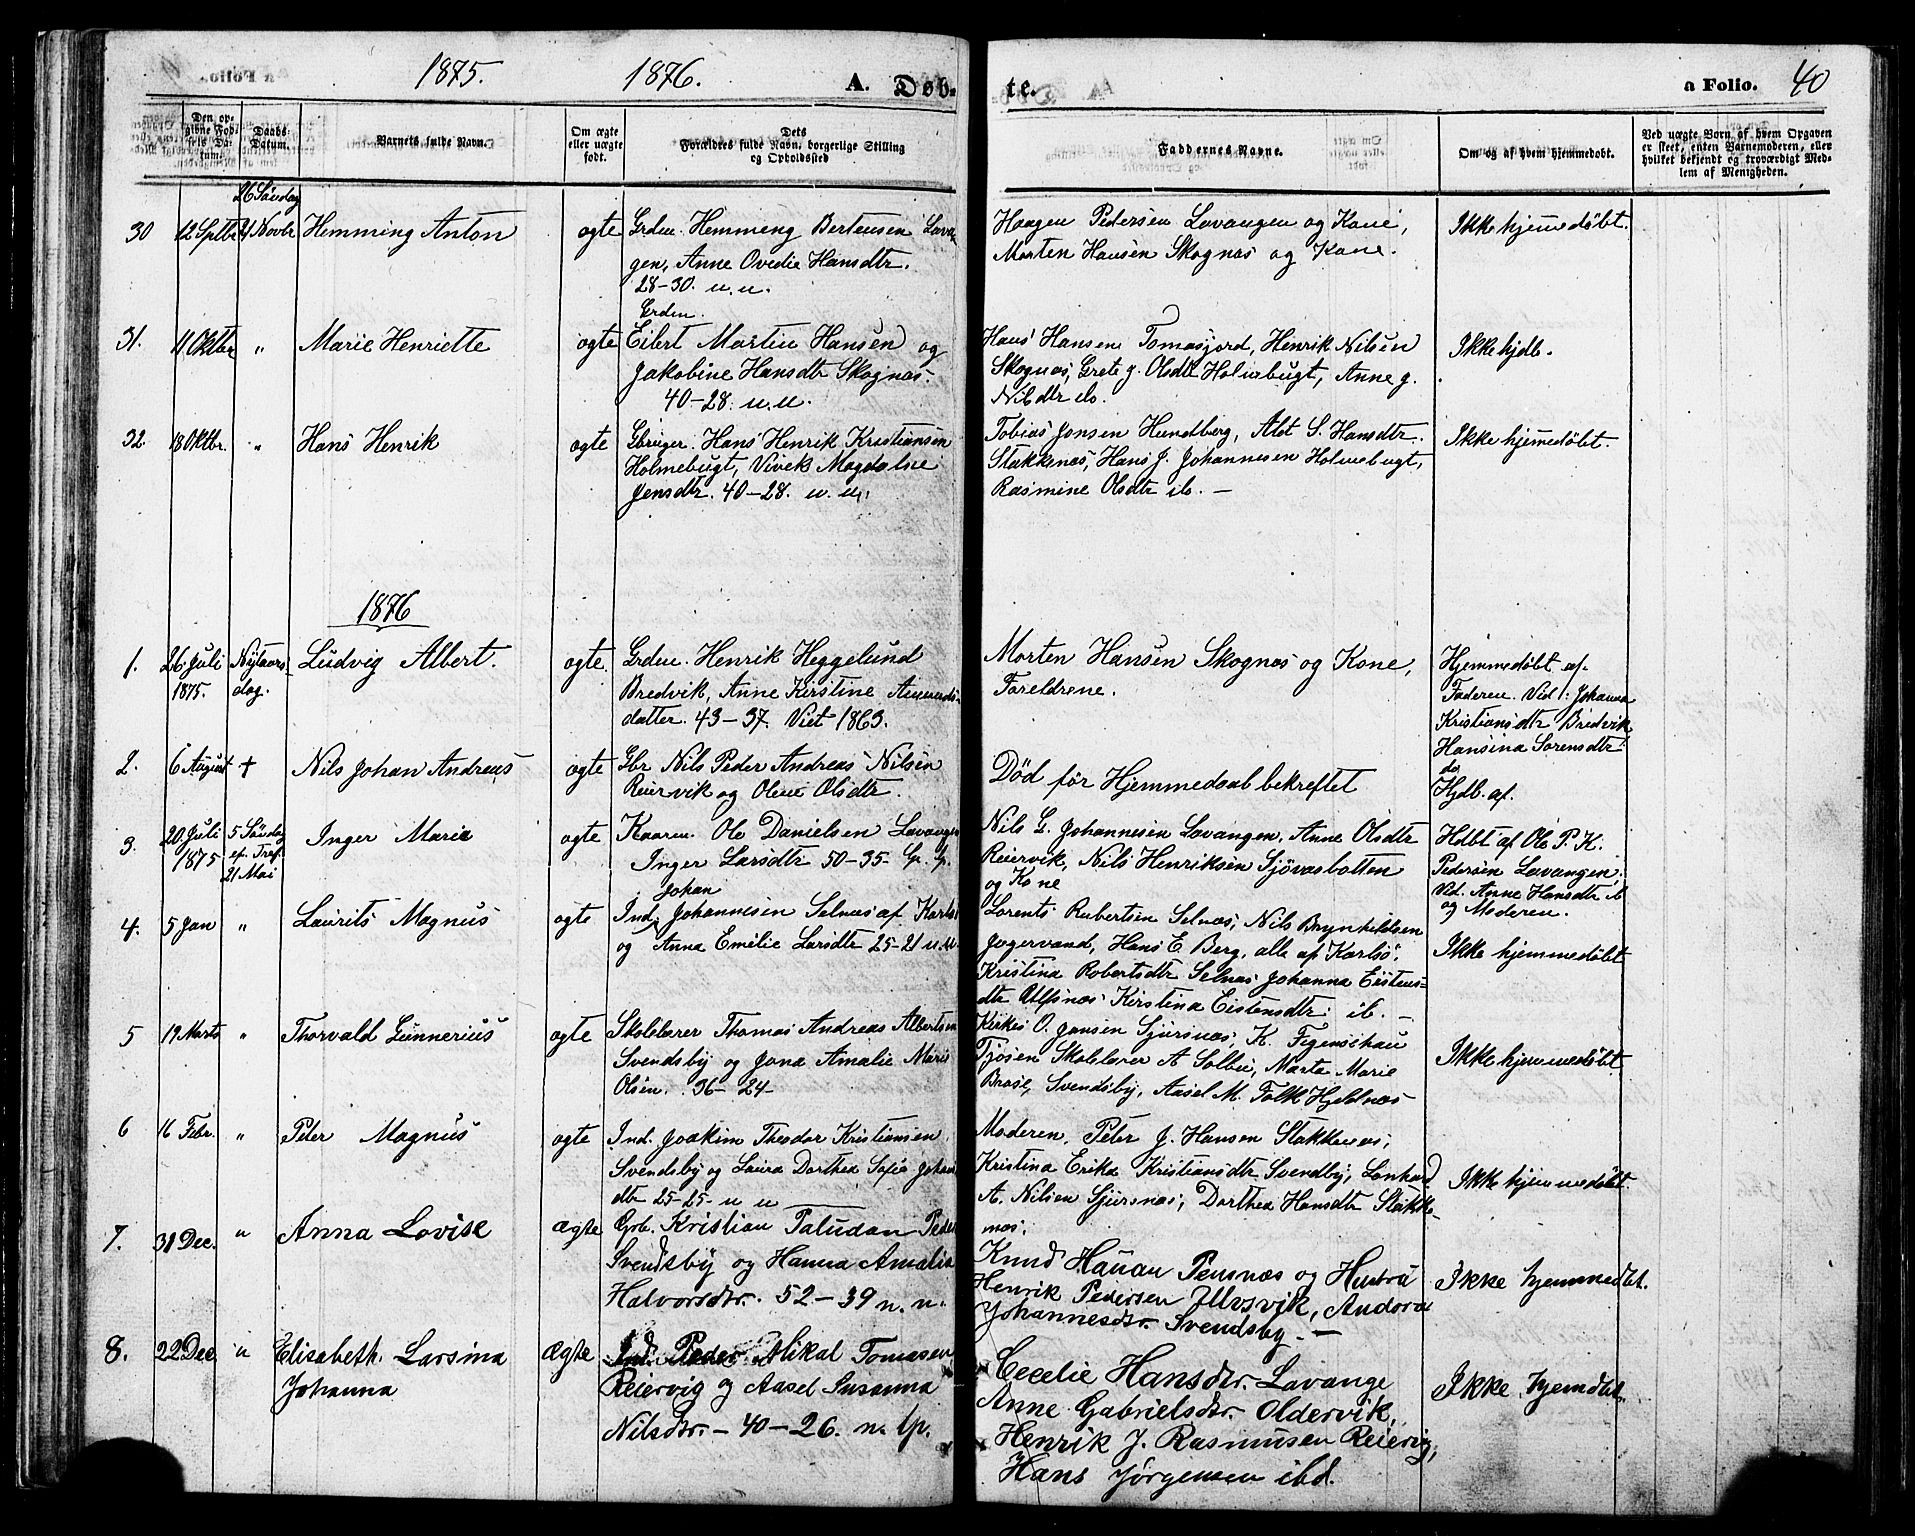 1875. 1876. A. Døb-
te. a Folio. 40
Den op-
givne Fød-
sels Da-
tum.
Daabs-
Datum.
Barnets fulde Navn.
Om ægte
eller uægte
født.
Dets
Forældres fulde Navn, borgerlige Stilling
og Opholdssted
Faddernes Navne.
Om og af hvem hjemmedøbt.
Ved uægte Børn af hvem Opgaven
er skeet, enten Barnemoderen, eller
hvilket bekjendt og troværdigt Med-
lem af Menigheden.
26 Søndag
30 12 Sptbr 21 Novbr Hemming Anton ogte Grdm. Hemming Bertensen Lava
gen, Anne Ovedie Hansdtr.
28-30. u.u.
Haagen Pedersen Lavangen og Kone,
Morten Hansen Skognæs og Kone.
Ikke hjemmedøbt.
Grdm.
31. 11 Oktbr " Marie Henriette ogte Eilert Martin Hansen og
Jakobine Hansdtr Skognæs.
40-28. u.u.
Hans Hansen Tomasjord, Henrik Nilsen
Skognæs, Grete J. Olsdtr Holmebugt, Anne J.
Nilsdtr ds.
Ikke hjdb.
32. 18 Oktbr. " Hans Henrik ogte Gbruger. Hans Henrik Kristiansen
Holmebugt, Vivek Magdalne
Jensdtr. 40-28. u. u.
Tobias Jensen Hundberg, Alet S. Hansdtr.
Stakkenæs, Hans J. Johannesen Holmebugt,
Rasmine Olsdtr ib. -
Ikke hjemmedøbt.
1876
1. 26. Juli
1875. Nytaars-
dag. Ludvig Albert. ogte Grdm. Henrik Heggelund
Bredvik, Anne Kirstine Amunds-
datter. 43-37. Viet 1863.
Morten Hansen Skognæs og Kone,
Foreldrene.
Hjemmedøbt af
Faderen. Vid: Johanna
Kristiansdtr Bredvik
Hansina Sorensdtr
ds
2. 6 August + Nils Johan Andreas ogte Gbr Nils Peder Andreas Nilsen
Reiervik og Oline Olsdtr.
Død før Hjemmedaab bekreftet
Hjdb. af.
3. 20 Juli
1875 5 Søndag
ef. Tref.
21 Mai Inger Maria ogte Kaarm. Ole Danielsen Lavangen
Inger Larsdtr 50-35 Lp. Lp.
Nils G. Johannesen Lavangen, Anne Olsdtr
Reiervik, Nils Henriksen Sjövasbotten
og Kone
Hdbt af Ole P. K.
Pedersen Lavangen.
Vid. Anne Hansdtr ib
og Moderen.
Johan
4. 5 Jan " Laurits Magnus ogte Ind. Johannesen Selnæs af Karlsö
og Anna Emilie Larsdtr 25-21 u. u.
Lorents Rubertsen Selnæs, Nils Brynhildsen
Jægervand, Hans E. Berg, alle af Karlsö,
Kristina Robertsdtr Selnæs Johanna Eistens-
dtr Ulfsnæs Kirstina Eistensdtr ib. -
Ikke hjemmedøbt
5 19 Marts " Thorvald Gunnerius ogte Skolelærer Thomas Andreas Albertsen
Svendsby og Jona Amalie Marie
Olsen. 36-24-
Kirkes O. Jensen Sjursnæs, K. Figenschau
Tjosen Skolelærer A Solbu, Marta Marie
Brose, Svendsby, Aasel M. Falk Hjeldnæs
Ikke hjemmedøbt
6 16 Febr. " Peter Magnus ogte Ind. Joakim Theodor Kristiansen
Svendsby og Laura Dorthea Sofie Johan
dtr 25-25- u u
Moderen, Peter J. Hansen Stakkenæs,
Kristina Erika Kristiansdtr Svendby, Lenhard
A. Nilsen Sjursnæs, Dorthea Hansdtr Stakke-
næs.
Ikke hjemmedøbt
7. 31 Dec. " Anna Lovise ægte Grb. Kristian Paludan Peder
Svendsby og Hanna Amalia
Halvorsdtr. 52-39 n. n.
Knud Hauan Pensnæs og Hustru
Henrik Pedersen Ullsvik, Andora
Johannesdtr. Svendsby. -
Ikke hjemmedbt.
8. 22 Dec " Elisabeth Larsina
Johanna ægte Ind. Peder Mikal Tomasen
Reiervig og Aasel Susanna
Nilsdtr. - 40-26. n. lp.
Cecelie Hansdtr. Lavange
Anne Gabrielsdtr. Oldervik,
Henrik J. Rasmusen Reiervig,
Hans Jørgensen ibd.
Ikke hjemdbt.